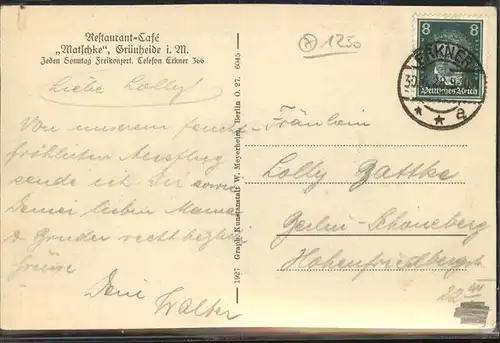 Restaurant-Café
„Matschke", Grünheide i. M.
Jeden Sonntag Freikonzert. Telefon Erkner 366
1250
8 8
Deutsches Reich
ERKNER
a
Liebe Lolly!
Von unserem feucht-
fröhlichen Ausflug
sende ich Dir sowie
Deiner lieben Mama
& Bruder recht herzliche
Grüsse
Dein Walter
1927 Graph. Kunstanstalt W. Meyerheim, Berlin O. 27. 6045
Fräulein
Lolly Gattke
Berlin-Schöneberg
Hohenfriedbergstr.